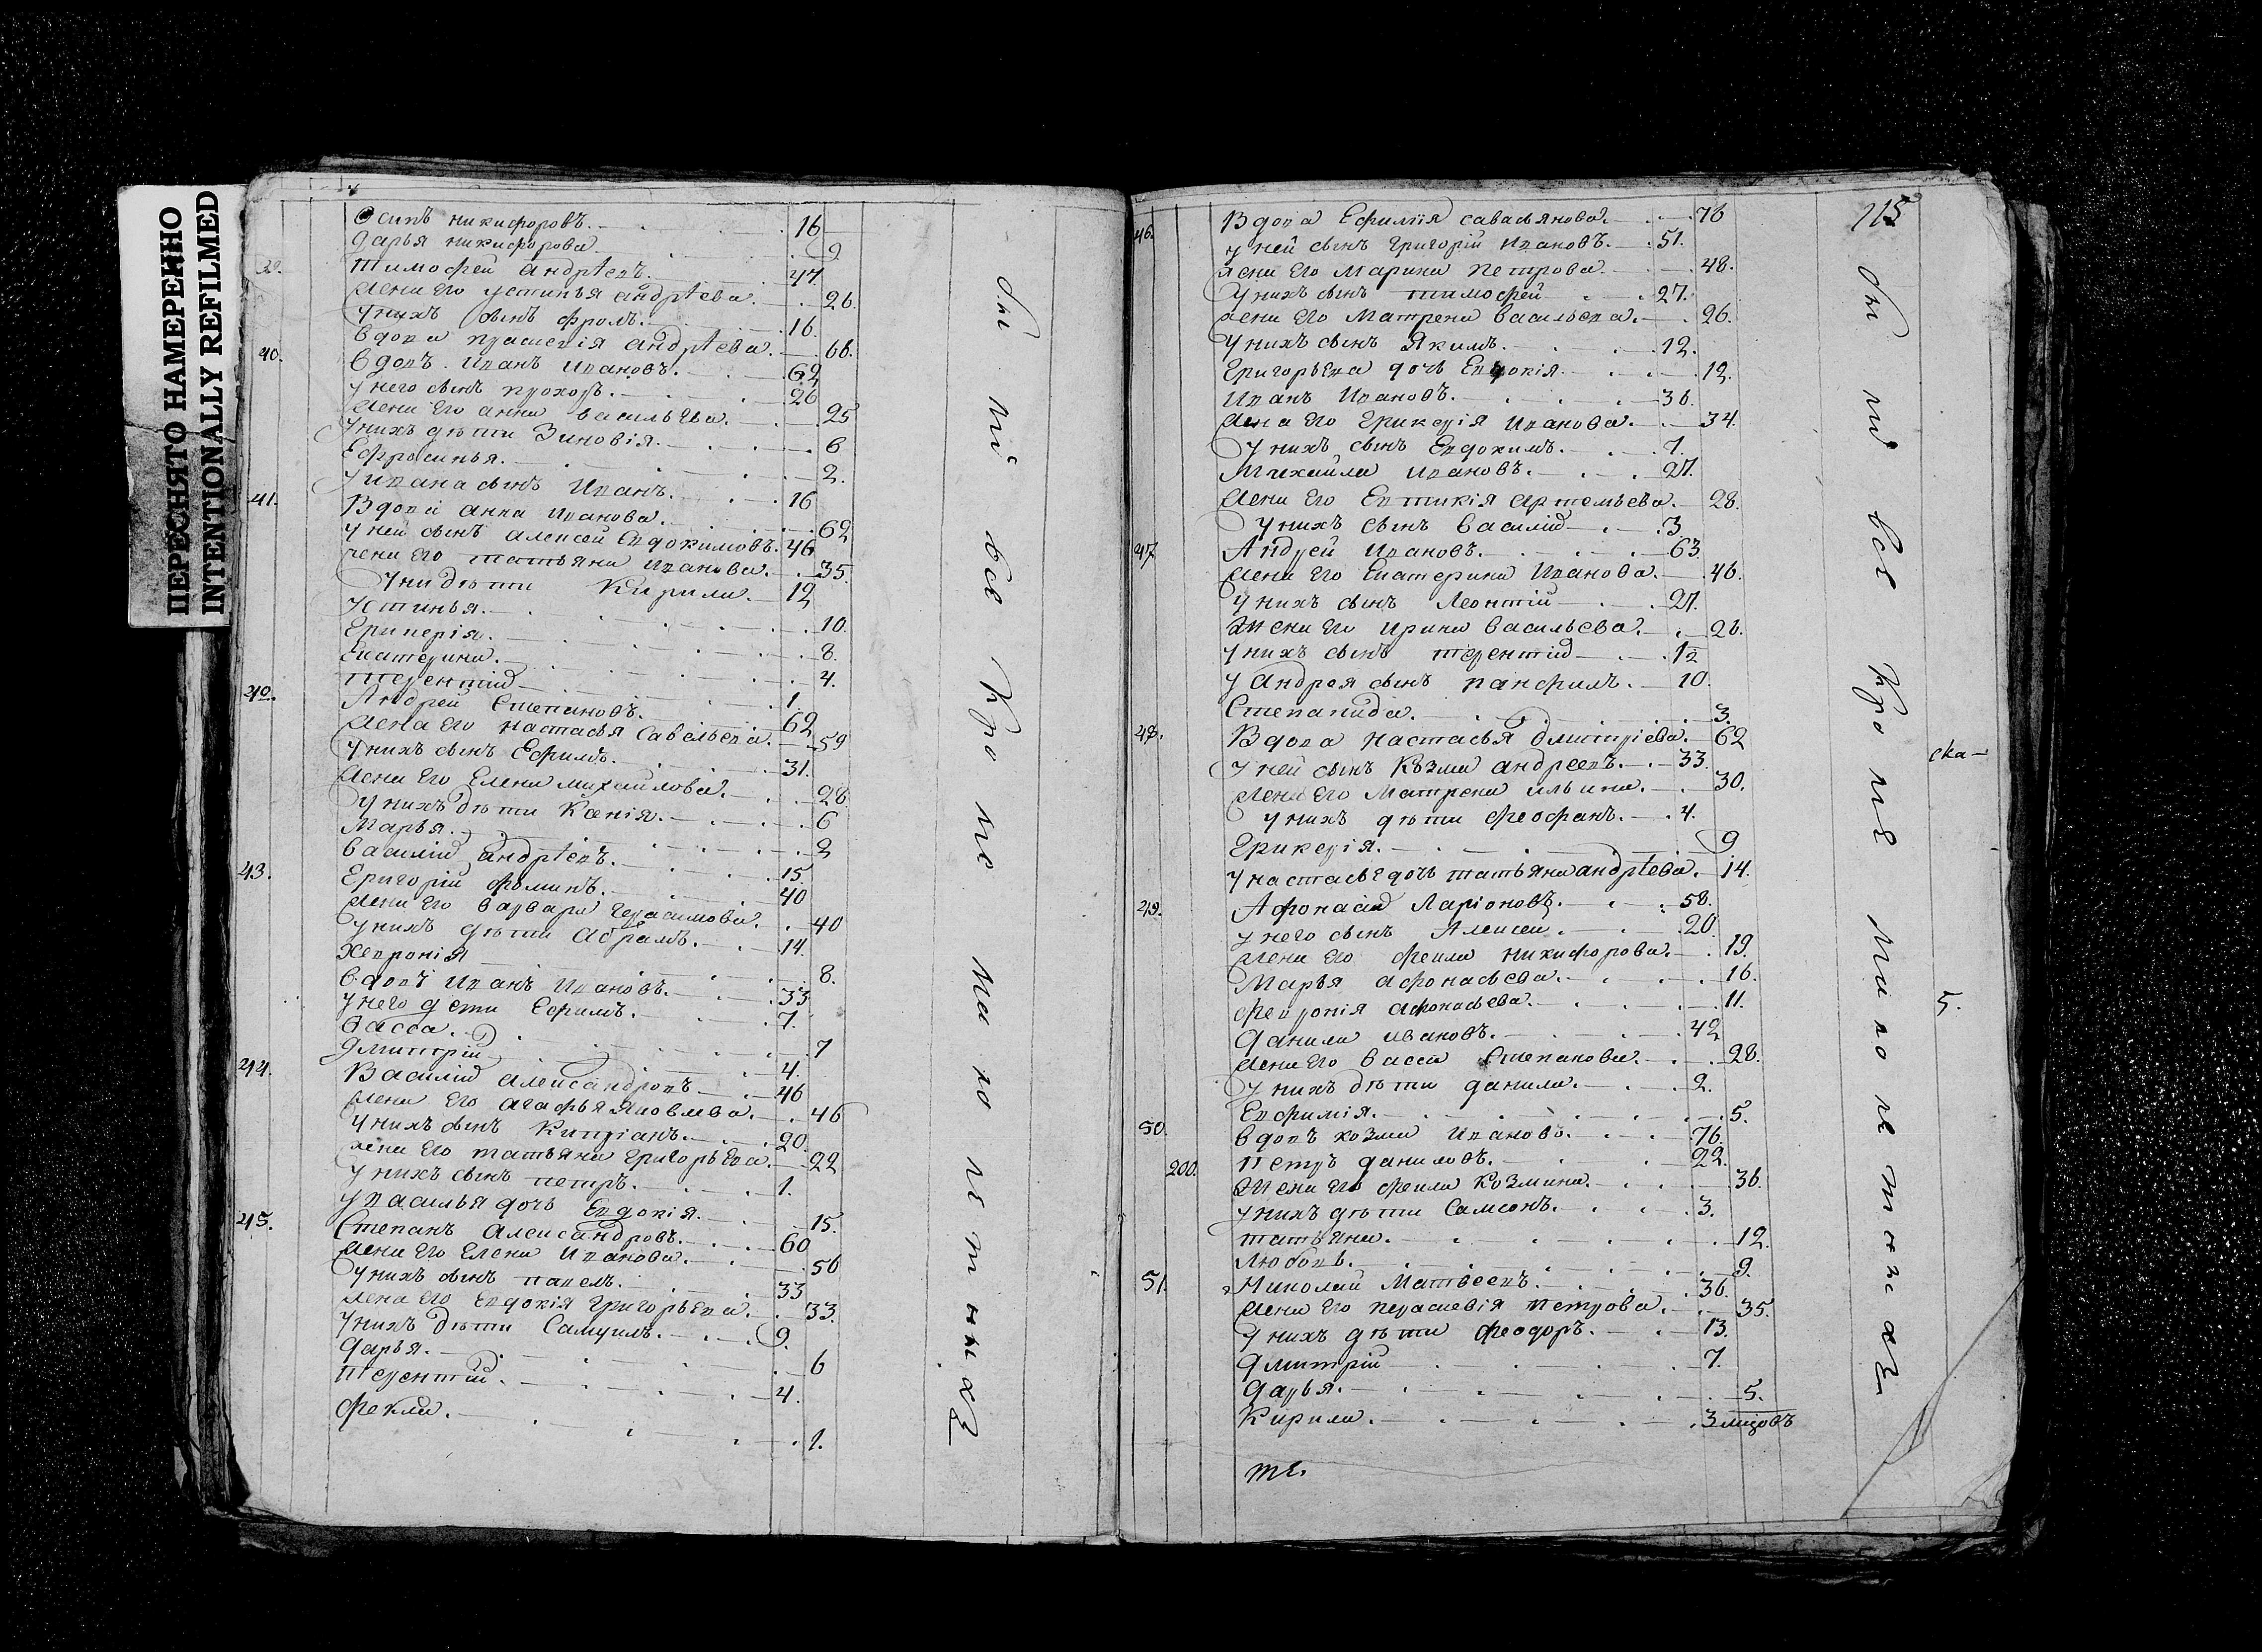 ПЕРЕСНЯТО НАМЕРЕННО
INTENTIONALLY REFILMED
Осипъ никифоровъ. 16
Дарья никифорова 9
39. Тимофей андрѣевъ. 47
жена его устинья андрѣева. 26
у нихъ сынъ фролъ. 16
вдова прасковія андрѣева. 66.
40. вдовъ иванъ ивановъ. 62
у него сынъ прохоръ. 26
жена его анна васильева. 25
у нихъ дѣти Зиновія. 6
Ефросинья. 2.
у ивана сынъ Иванъ. 16
41. Вдова анна иванова. 62
у ней сынъ алексей Евдокимовъ. 46
жена его татьяна иванова. 35.
у ни дѣти Кирила. 12
устинья. 10.
8.
Екатерина. 4.
терентий 1.
42. Андрей Степановъ. 62
жена его настасья Савельева. 59
у нихъ сынъ Ефимъ. 31.
жена его Елена михайлова. 28
у нихъ дѣти Ксенія. 6
Марья. 2
василий андрѣевъ. 15
43. Григорій фоминъ. 40
жена его варвара герасимова. 40
у нихъ дѣти абрамъ. 14.
Хевронія 8.
вдовъ иванъ ивановъ. 33
у него дети Ефимъ. 7.
васса. 7
Дмитрій 4.
44. Василій александровъ 46
жена его агафья яковлева. 46
у нихъ сынъ Кипріанъ. 20.
жена его татьяна григорьева. 22
у нихъ сынъ петръ. 1.
у василья дочь Евдокія. 15.
45. Степанъ александровъ. 60
жена его Елена иванова. 56
у нихъ сынъ павелъ. 33
жена его Евдокія григорьева. 33.
у нихъ дѣти Самуилъ. 9.
Дарья. 6
терентій. 4.
фекла. 1.
были все кроме малолетныхъ
215
46. Вдова Ефимія савасьянова. 76
у ней сынъ григорій ивановъ. 51.
жена его Марина петрова. 48.
у нихъ сынъ тимофей 27.
жена его Матрена васильева. 26.
у нихъ сынъ Якимъ. 12.
григорьева дочь Евдокія. 12.
иванъ ивановъ. 36.
жена его гликерія иванова. 34.
у нихъ сынъ Евдокимъ. 7.
Михайла ивановъ. 27.
жена его Евтикія артемьева. 28.
у нихъ сынъ василій 3.
47. Андрей ивановъ. 63
жена его Екатерина иванова. 46.
у нихъ сынъ Леонтій 27.
жена его ирина васильева. 26.
у нихъ сынъ терентій 1/2
у андрея сынъ панфилъ. 10.
Степанида. 3.
48. Вдова настасья дмитріева. 62
у ней сынъ Козма андреевъ. 33.
жена его Матрена ильина. 30.
у нихъ дѣти феофанъ. 4.
гликерія. 9
у настасье дочь татьяна андрѣева. 14.
49. Афонасій Ларіоновъ. 58.
у него сынъ Алексей. 20.
жена его фекла никифорова. 19.
Марья афонасьева. 16.
февронія афонасьева. 11.
Данила ивановъ. 42
жена его васса Степанова. 28.
у нихъ дѣти данила. 2.
Евфимія. 5.
50. вдовъ козма ивановъ. 76.
200. петръ даниловъ. 22.
жена его фекла козмина. 36.
у нихъ дѣти Самсонъ. 3.
татьяна. 12.
Любовь. 9.
51. Николай Матвеевъ. 36.
жена его параскевія петрова. 35.
у нихъ дѣти феодоръ. 13.
Дмитрій 7.
Дарья. 5.
Кирила. 3 мцовъ
те.
были все кромѣ малолетныхъ
ска-
5.